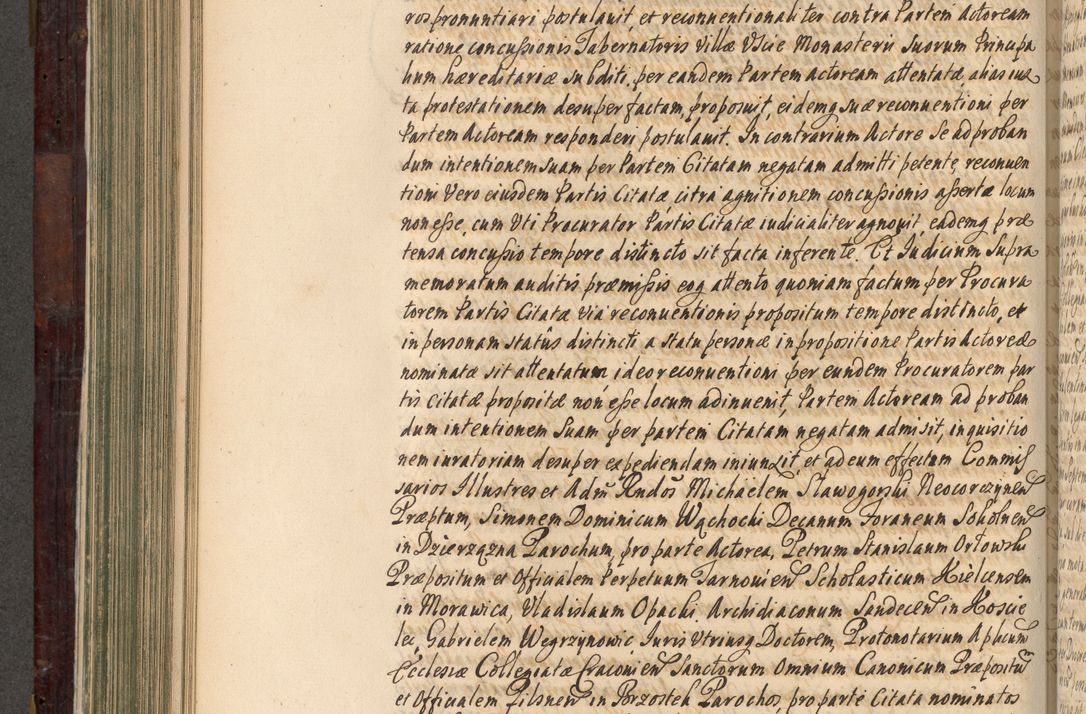 ros pronuntiari postulauit, et reconuentionaliter contra Partem Actoream
ratione concussionis Tabernatoris Villæ Vscie Monasterii Suorum Principa
lium hæreditariæ Subditi, per eandem Partem actoream attentatæ, alias iux
ta protestationem desuper factam, proposuit, eidemq suæ reconuentioni per
Partem Actoream responderi postulauit. In contrarium Actore Se ad proban
dum intentionem suam per Partem Citatam negatam admitti petente, reconuen
tioni Vero eiusdem Partis Citatæ citra agnitionem concussionis assertæ locum
non esse, cum Vti Procurator Partis Citatæ iudicialiter agnouit, eademq præ
tensa concussio tempore distincto sit facta inferente. Et Iudicium Supra
memoratum auditis præmissis eoq attento quoniam factum per Procura
torem Partis Citatæ Via reconuentionis propositum tempore distincto, et
in personam statûs distincti a statu personæ in propositione Partis Actoreæ
nominatæ sit attentatum ideo reconuentioni per eundem Procuratorem par
tis Citatæ propositæ non esse locum adinuenit, Partem Actoream ad proban
dum intentionem Suam per partem Citatam negatam admisit, inquisitio
nem iuratoriam desuper expediendam iniunxit, et ad eum effectum Commis
sarios Illustres et Adm Rndos Michaelem Slawogorski Neocorczynen
Præptum, Simonem Dominicum Wąchocki Decanum Foraneum Sokolnen
in Dzierzązna Parochum, pro parte Actorea, Petrum Stanislaum Orłowski
Præpositum et Officialem Perpetuum Tarnouien Scholasticum Kielcensem
in Morawica, Vladislaum Opacki Archidiaconum Sandecen in Koscie
lec, Gabrielem Węgrzynowic Iuris Vtriusq Doctorem, Protonotarium Aplicum
Ecclesiæ Collegiatæ Cracouien Sanctorum Omnium Canonicum Præpositu
et Officialem Pilsnen in Brzostek Parochos, pro parte Citata nominatos